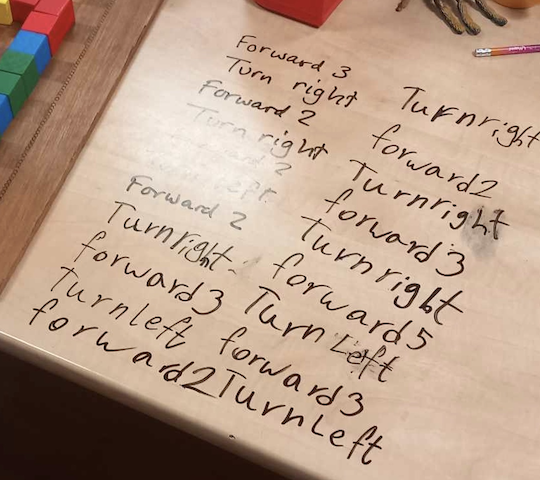 Forward 3
Turn right
Forward 2
Turn right
2
left.
Forward 2
Turnright
forward3
Turnleft
forward2
Turnright
forward2
Turnright
forward3
Turnright
forward5
Turn Left
forward3
TurnLeft